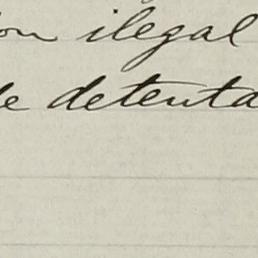 on ilegal
de detenta